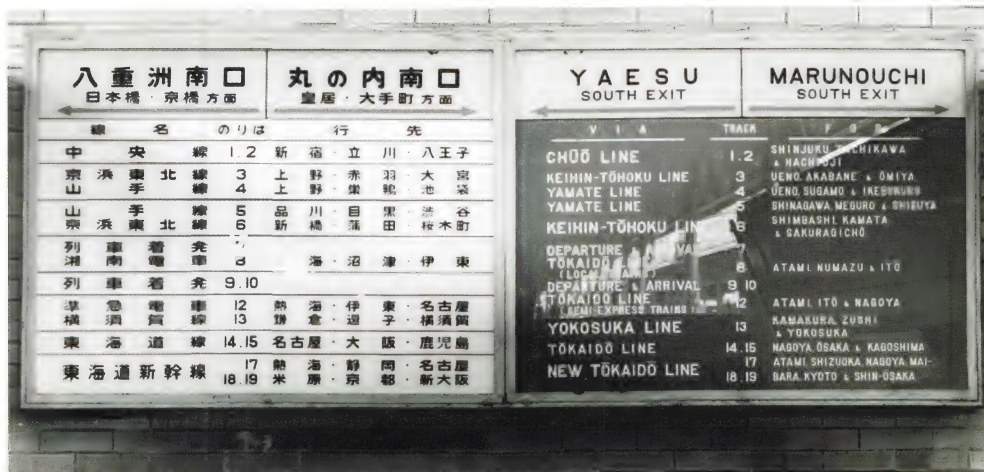 八重洲南口
日本橋・京橋方面
丸の内南口
皇居・大手町方面
線名 のりば 行先
中央線 1.2 新宿・立川・八王子
京浜東北線 3 上野・赤羽・大宮
山手線 4 上野・巣鴨・池袋
山手線 5 品川・目黒・渋谷
京浜東北線 6 新橋・蒲田・桜木町
列車着発
湘南電車 8 海・沼津・伊東
列車着発 9.10
準急電車 12 熱海・伊東・名古屋
横須賀線 13 鎌倉・逗子・横須賀
東海道線 14.15 名古屋・大阪・鹿児島
東海道新幹線 17 熱海・静岡・名古屋
18.19 米原・京都・新大阪
YAESU
SOUTH EXIT
MARUNOUCHI
SOUTH EXIT
VIA TRACK FOR
CHŪŌ LINE 1.2 SHINJUKU, TACHIKAWA
& HACHIOJI
KEIHIN-TŌHOKU LINE 3 UENO, AKABANE & ŌMIYA
YAMATE LINE 4 UENO, SUGAMO & IKEBUKURO
YAMATE LINE 5 SHINAGAWA, MEGURO & SHIBUYA
KEIHIN-TŌHOKU LINE 6 SHIMBASHI, KAMATA
& SAKURAGICHŌ
DEPARTURE & ARRIVAL 7
TŌKAIDŌ LINE 8 ATAMI, NUMAZU & ITŌ
(LOCAL
DEPARTURE & ARRIVAL 9 10
TŌKAIDŌ LINE 12 ATAMI, ITŌ & NAGOYA
(SEMI-EXPRESS TRAINS)
YOKOSUKA LINE 13 KAMAKURA, ZUSHI
& YOKOSUKA
TŌKAIDŌ LINE 14.15 NAGOYA, ŌSAKA & KAGOSHIMA
NEW TŌKAIDŌ LINE 17 ATAMI, SHIZUOKA, NAGOYA, MAI-
18.19 BARA, KYOTO & SHIN-ŌSAKA